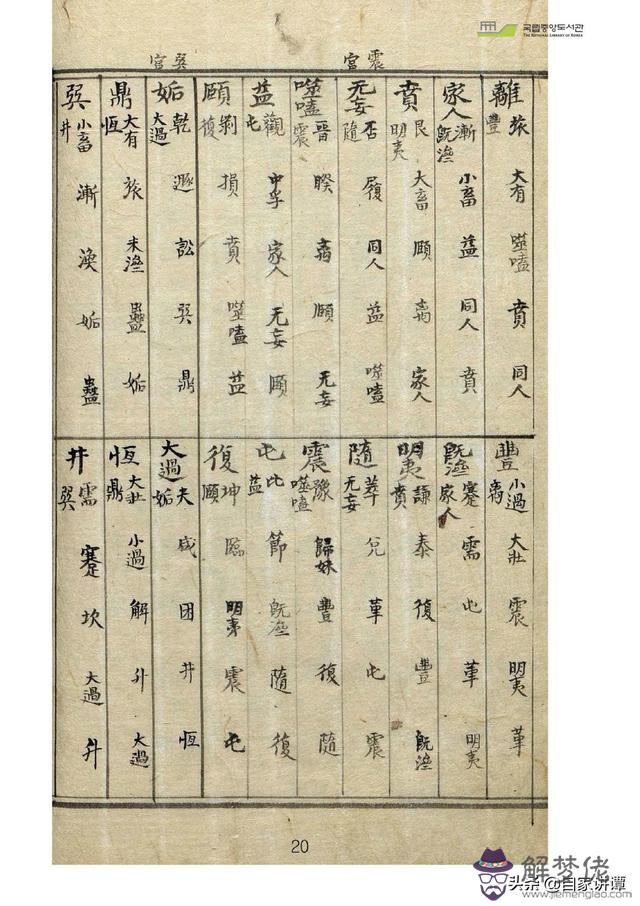 國립중앙도서관
THE NATIONAL LIBRARY OF KOREA
震宮
巽宮
離 旅 豐 大有 噬嗑 賁 同人
家人 漸 既濟 小畜 益 同人 賁
賁 艮 明夷 大畜 頤 离 家人
无妄 否 隨 履 同人 益 噬嗑
噬嗑 晉 震 睽 离 頤 无妄
益 觀 屯 中孚 家人 无妄 頤
頤 剥 復 損 賁 噬嗑 益
姤 乾 大過 遯 訟 巽 鼎
鼎 大有 恆 旅 未濟 蠱 姤
巽 小畜 井 漸 渙 姤 蠱
豐 小過 离 大壯 震 明夷 革
既濟 蹇 家人 需 屯 革 明夷
明夷 謙 賁 泰 復 豐 既濟
隨 萃 无妄 兌 革 屯 震
震 豫 噬嗑 歸妹 豐 復 隨
屯 比 益 節 既濟 隨 復
復 坤 頤 臨 明夷 震 屯
大過 夬 姤 咸 困 井 恆
恆 大壯 鼎 小過 解 升 大過
井 需 巽 蹇 坎 大過 升
20
解梦佬
头条 @自家讲谭
www.jiemenglao.com